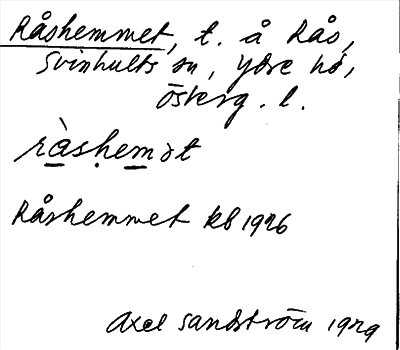 Råshemmet, t. å Rås,
Svinhults sn, Ydre hd,
Österg. l.
ràshemət
Råshemmet kb 1926
Axel Sandström 1929